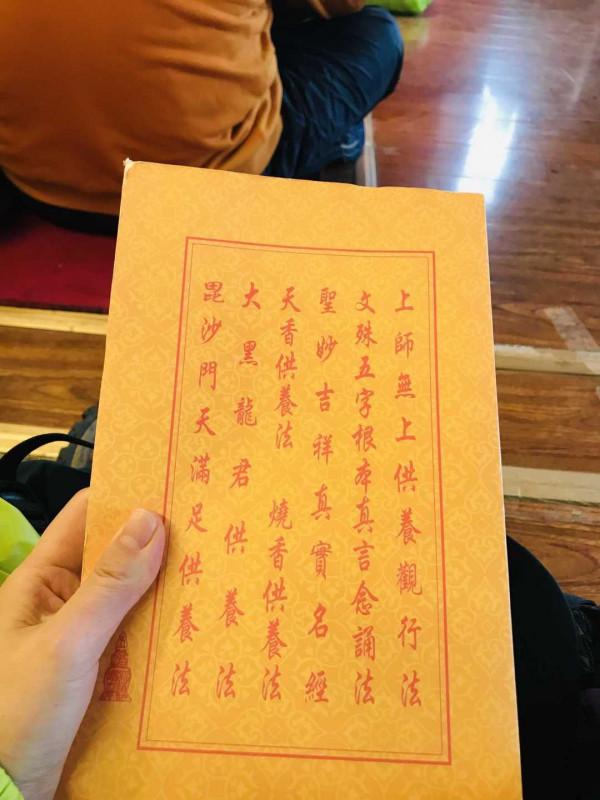 上師無上供養觀行法
文殊五字根本真言念誦法
聖妙吉祥真實名經
天香供養法 燒香供養法
大黑龍君供養法
毘沙門天滿足供養法